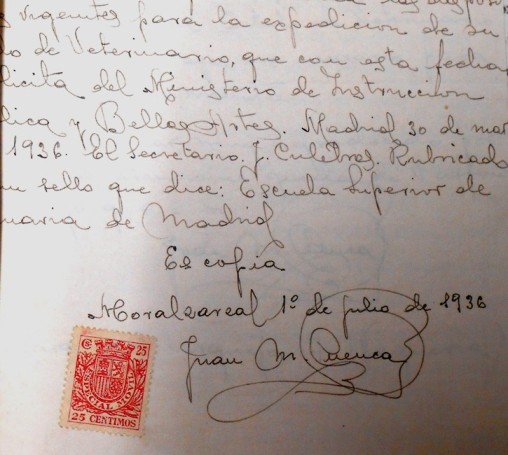 vigentes para la expedicion de su
de Veterinario, que con esta fecha
licita del Ministerio de Instruccion
lica y Bellas Artes. Madrid 30 de mar
1936. El Secretario. J. Culebras. Rubricado
un sello que dice: Escuela Superior de
inaria de Madrid
Es copia
Moralzarzal 1º de julio de 1936
Juan M. Cuenca
25
ESPECIAL MOVIL
25 CENTIMOS